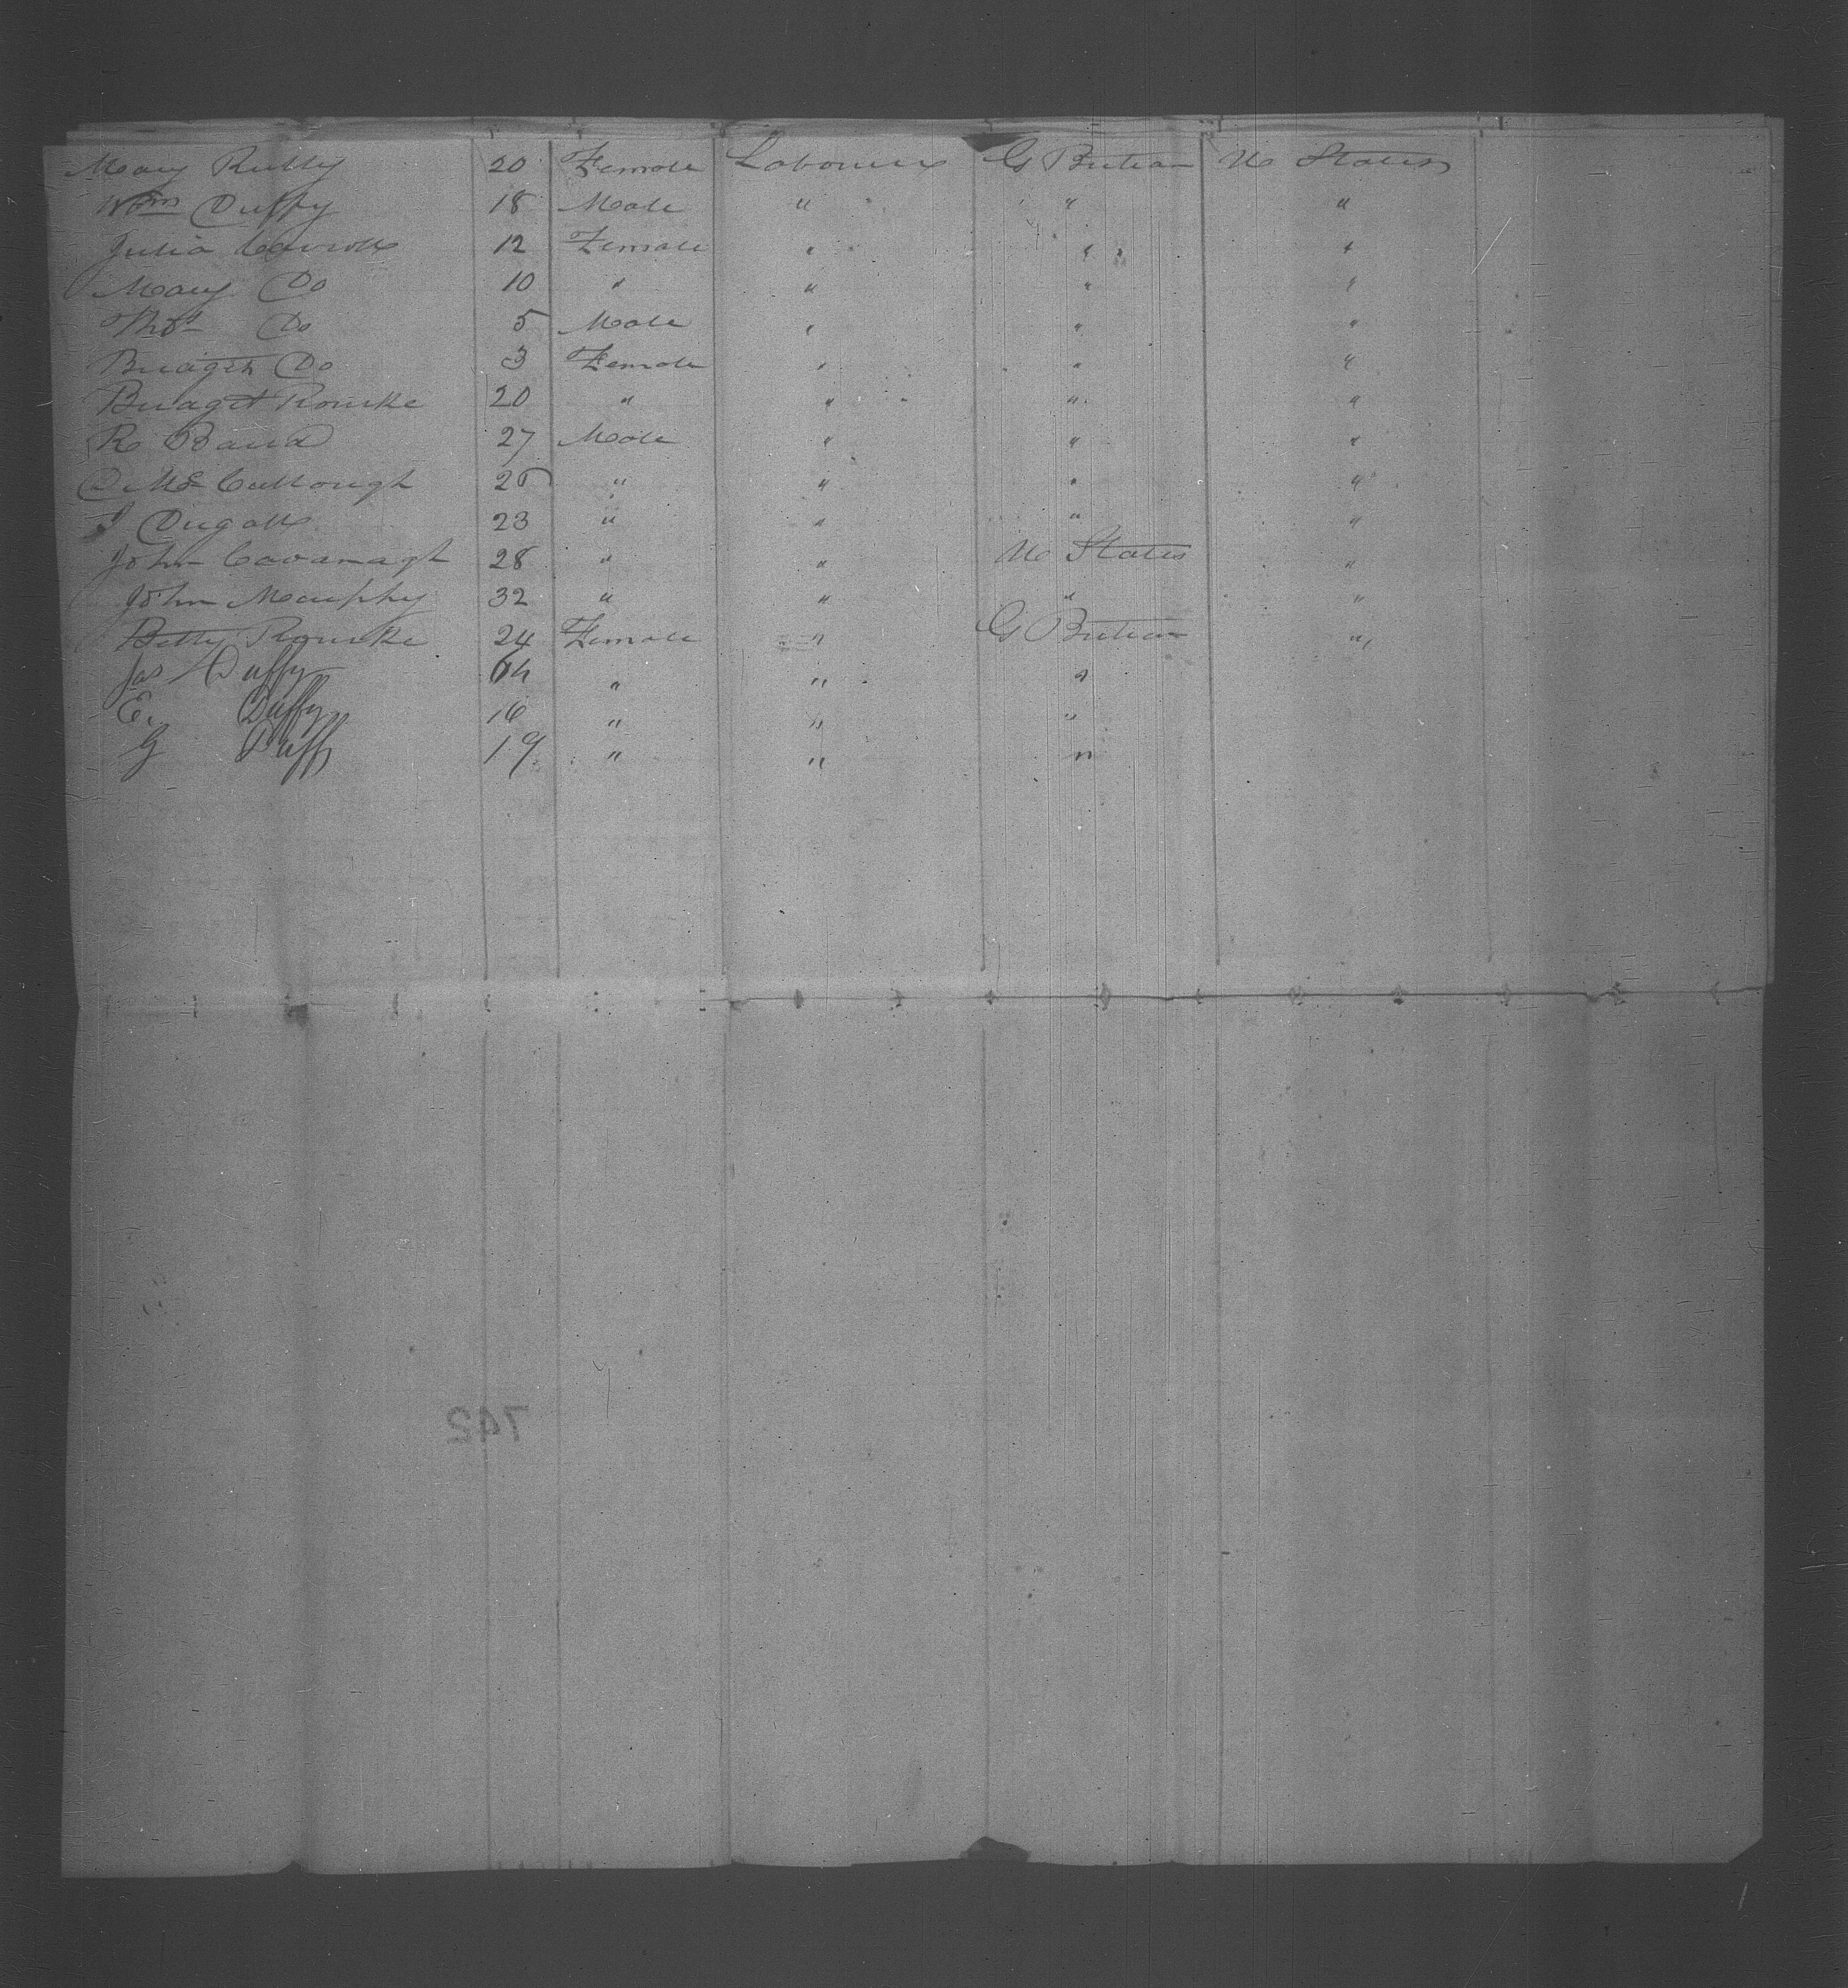 Mary Rutty 20 Female Labourers G Britian U States
Wm Duffy 18 Male " " "
Julia Carroll 12 Female " " "
Mary Do 10 " " " "
Thos Do 5 Male " " "
Bridget Do 3 Female " " "
Bridget Rourke 20 " " " "
R Baird 27 Male " " "
D McCullough 25 " " " "
J Dugall 23 " " " "
John Cavanagh 28 " " U States "
John Murphy 32 " " " "
Betty Rourke 24 Female " G Britian "
Jas Duffy " " "
E. Duffy 16 " " "
G Duffy 19 " " "
742